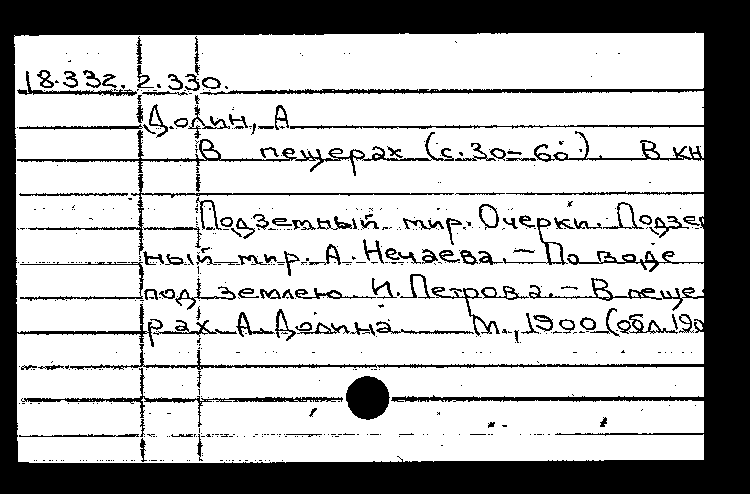 18.332.2.330.
Долин, А
В пещерах (с.30-60). В кн
Подземный мир. Очерки. Подзе
ный мир. А. Нечаева. - По воде
под землею. И. Петрова. - В пеще
рах. А. Долина. М., 1900 (обл. 190